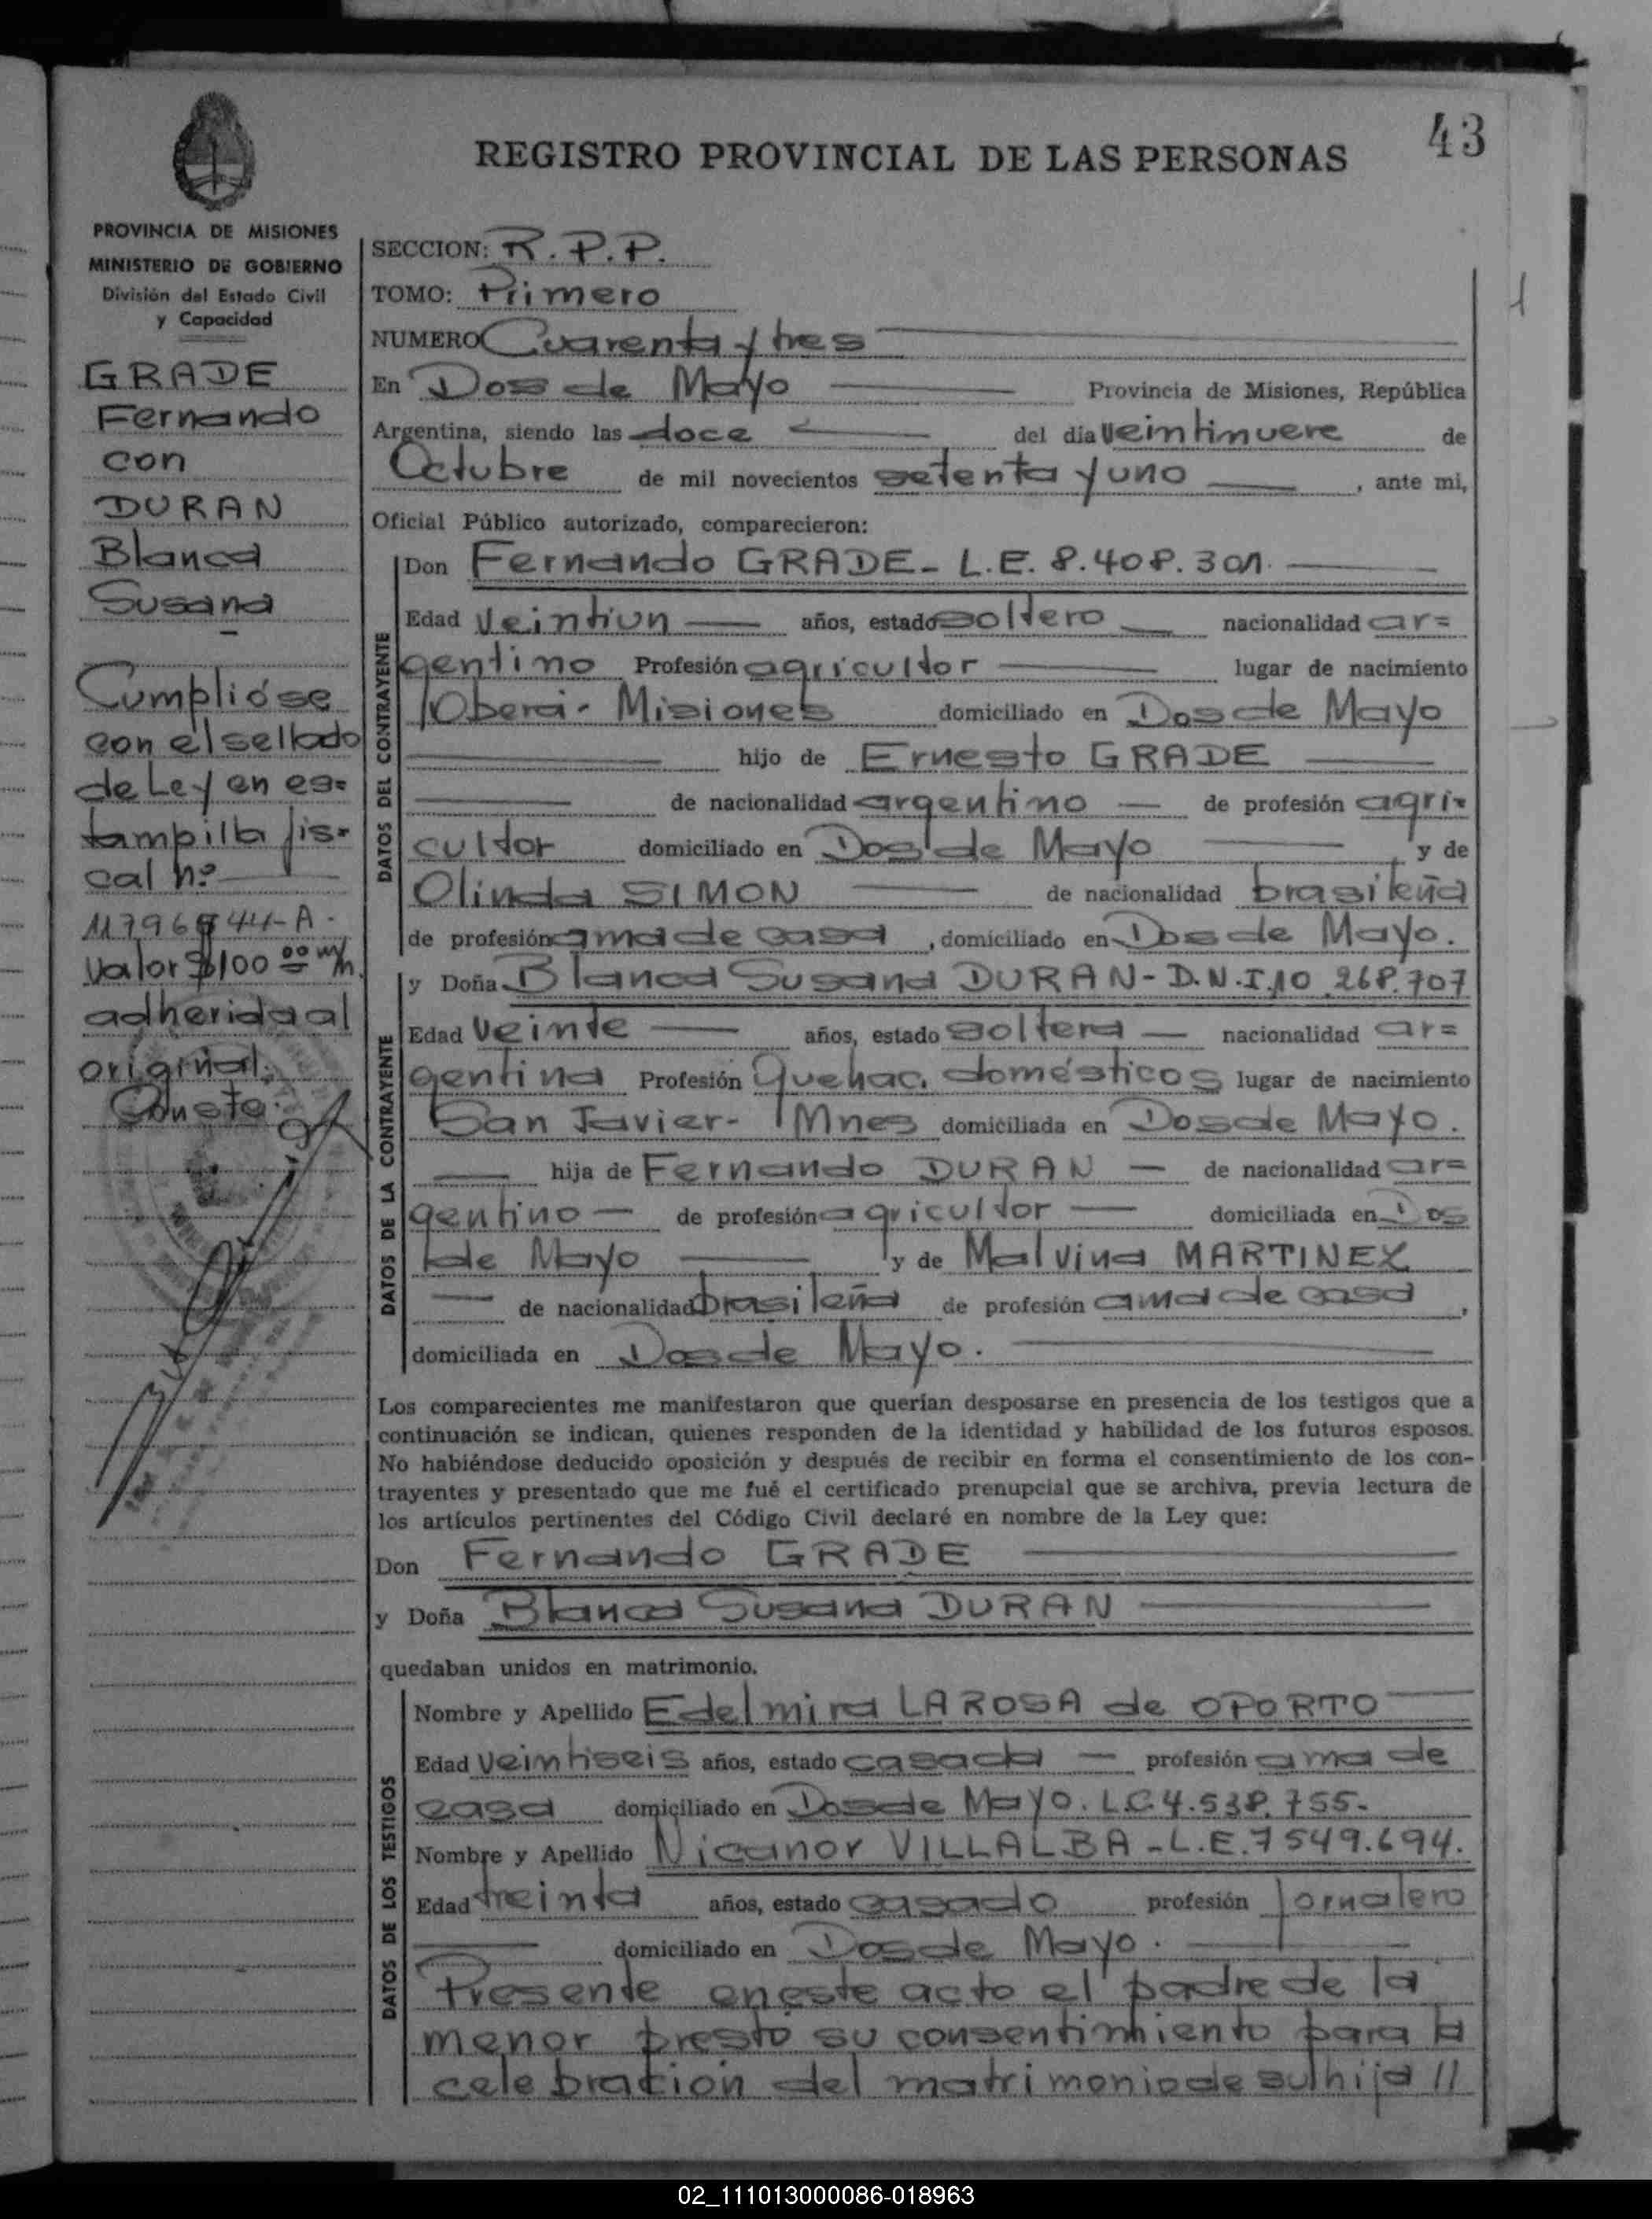 43
REGISTRO PROVINCIAL DE LAS PERSONAS
PROVINCIA DE MISIONES
MINISTERIO DE GOBIERNO
División del Estado Civil
y Capacidad
GRADE
Fernando
con
DURAN
Blanca
Susana
Cumplióse
con el sellado
de Ley en es=
tampilla fis-
cal nº
44-A.
Valor $100 00 m/n.
adherida al
original.
Conste.
SECCION: R.P.P.
TOMO: Primero
NUMERO Cuarenta y tres
En Dos de Mayo Provincia de Misiones, República
Argentina, siendo las doce del dia veintinueve de
Octubre de mil novecientos setenta y uno, ante mi,
Oficial Público autorizado, comparecieron:
DATOS DEL CONTRAYENTE
Don Fernando GRADE- L.E. 8.408.301.
Edad veintiun años, estado soltero nacionalidad ar=
gentino Profesión agricultor lugar de nacimiento
Oberá- Misiones domiciliado en Dos de Mayo
hijo de Ernesto GRADE
de nacionalidad argentino de profesión agri=
cultor domiciliado en Dos de Mayo y de
Olinda SIMON de nacionalidad brasileña
de profesión ama de casa, domiciliado en Dos de Mayo.
DATOS DE LA CONTRAYENTE
y Doña Blanca Susana DURAN- D.N.I.10.268.707
Edad veinte años, estado soltera nacionalidad ar=
gentina Profesión Quehac. domésticos lugar de nacimiento
San Javier- Mnes domiciliada en Dos de Mayo.
hija de Fernando DURAN de nacionalidad ar=
gentino de profesión agricultor domiciliada en Dos
de Mayo y de Malvina MARTINEZ
de nacionalidad brasileña de profesión ama de casa,
domiciliada en Dos de Mayo.
Los comparecientes me manifestaron que querían desposarse en presencia de los testigos que a
continuación se indican, quienes responden de la identidad y habilidad de los futuros esposos.
No habiéndose deducido oposición y después de recibir en forma el consentimiento de los con-
trayentes y presentado que me fué el certificado prenupcial que se archiva, previa lectura de
los artículos pertinentes del Código Civil declaré en nombre de la Ley que:
Don Fernando GRADE
y Doña Blanca Susana DURAN
quedaban unidos en matrimonio.
DATOS DE LOS TESTIGOS
Nombre y Apellido Edelmira LA ROSA de OPORTO
Edad veintiseis años, estado casada profesión ama de
casa domiciliado en Dos de Mayo. L.C.4.538.755-
Nombre y Apellido Nicanor VILLALBA -L.E.7549.694.
Edad treinta años, estado casado profesión jornalero
domiciliado en Dos de Mayo.
Presente en este acto el padre de la
menor prestó su consentimiento para la
celebración del matrimonio de su hija //
02_111013000086-018963